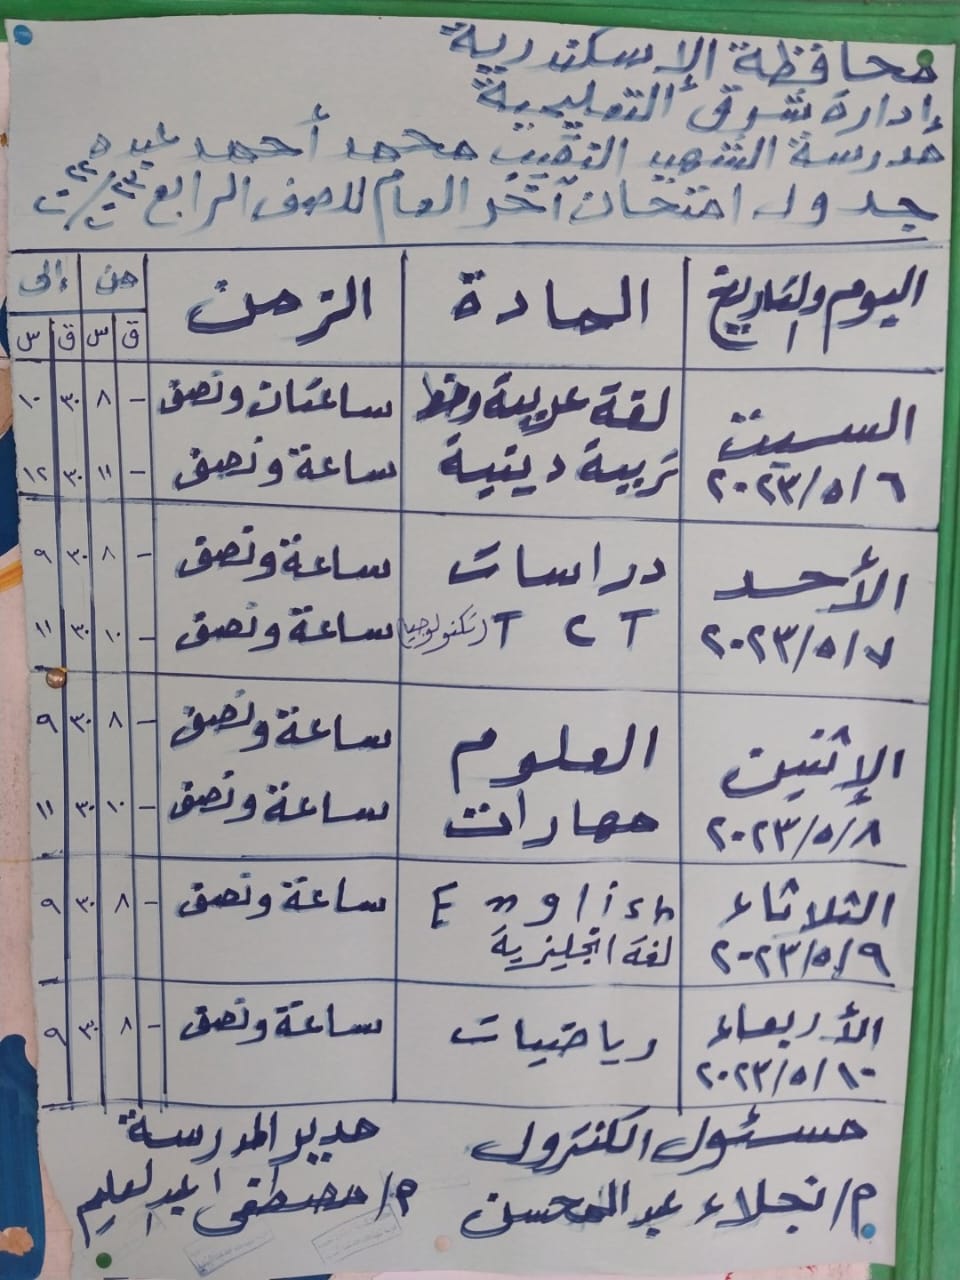 محافظة الإسكندرية
إدارة شرق التعليمية
مدرسة الشهيد النقيب محمد أحمد عبده
جدول امتحان آخر العام للصف الرابع ٢٣/٢٢
اليوم والتاريخ المادة الزمن من إلى
ق س ق س
السبت ٢٠٢٣/٥/٦
لغة عربية وخط ساعتان ونصف - ٨ ٣٠ ١٠
تربية دينية ساعة ونصف - ١١ ٣٠ ١٢
الأحد ٢٠٢٣/٥/٧
دراسات ساعة ونصف - ٨ ٣٠ ٩
T C T (تكنولوجيا) ساعة ونصف - ١٠ ٣٠ ١١
الإثنين ٢٠٢٣/٥/٨
العلوم ساعة ونصف - ٨ ٣٠ ٩
مهارات ساعة ونصف - ١٠ ٣٠ ١١
الثلاثاء ٢٠٢٣/٥/٩
English ساعة ونصف - ٨ ٣٠ ٩
لغة انجليزية
الأربعاء ٢٠٢٣/٥/١٠
رياضيات ساعة ونصف - ٨ ٣٠ ٩
مسئول الكنترول
م/ نجلاء عبد المحسن
مدير المدرسة
م/ مصطفى عبد العليم